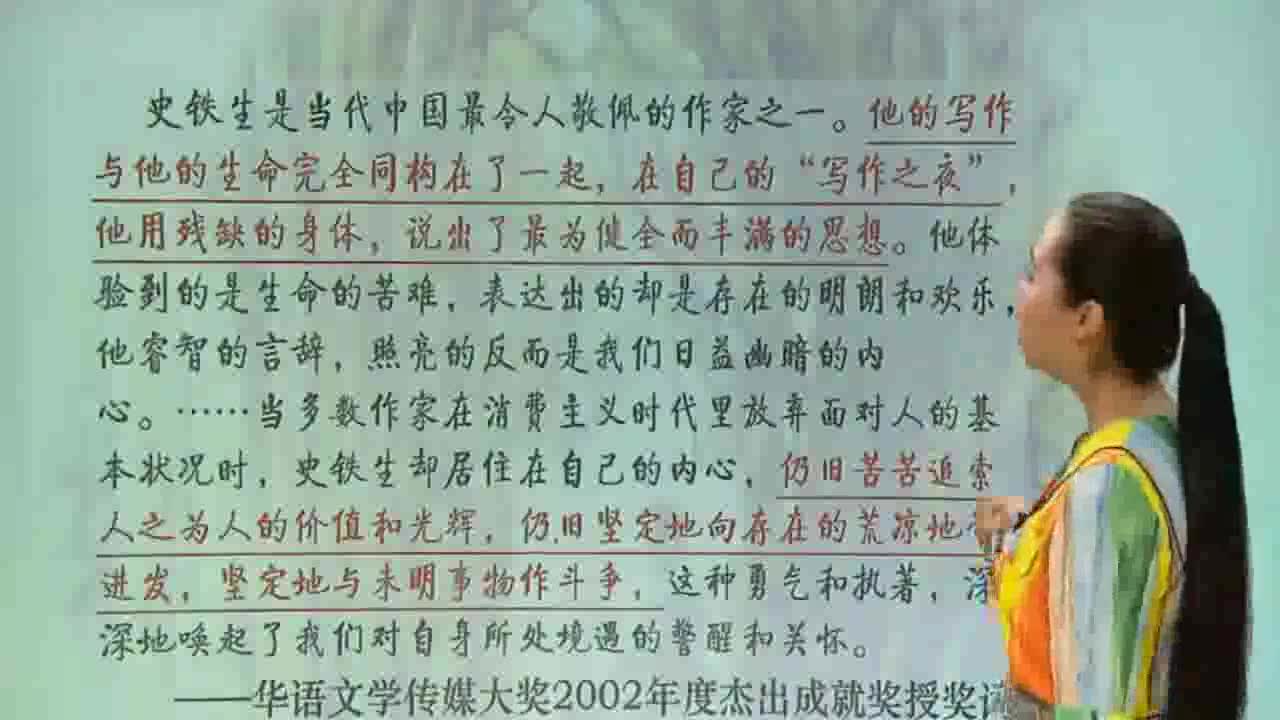 史铁生是当代中国最令人敬佩的作家之一。他的写作
与他的生命完全同构在了一起，在自己的“写作之夜”，
他用残缺的身体，说出了最为健全而丰满的思想。他体
验到的是生命的苦难，表达出的却是存在的明朗和欢乐，
他睿智的言辞，照亮的反而是我们日益幽暗的内
心。……当多数作家在消费主义时代里放弃面对人的基
本状况时，史铁生却居住在自己的内心，仍旧苦苦追索
人之为人的价值和光辉，仍旧坚定地向存在的荒凉地
进发，坚定地与未明事物作斗争，这种勇气和执著，深
深地唤起了我们对自身所处境遇的警醒和关怀。
——华语文学传媒大奖2002年度杰出成就奖授奖